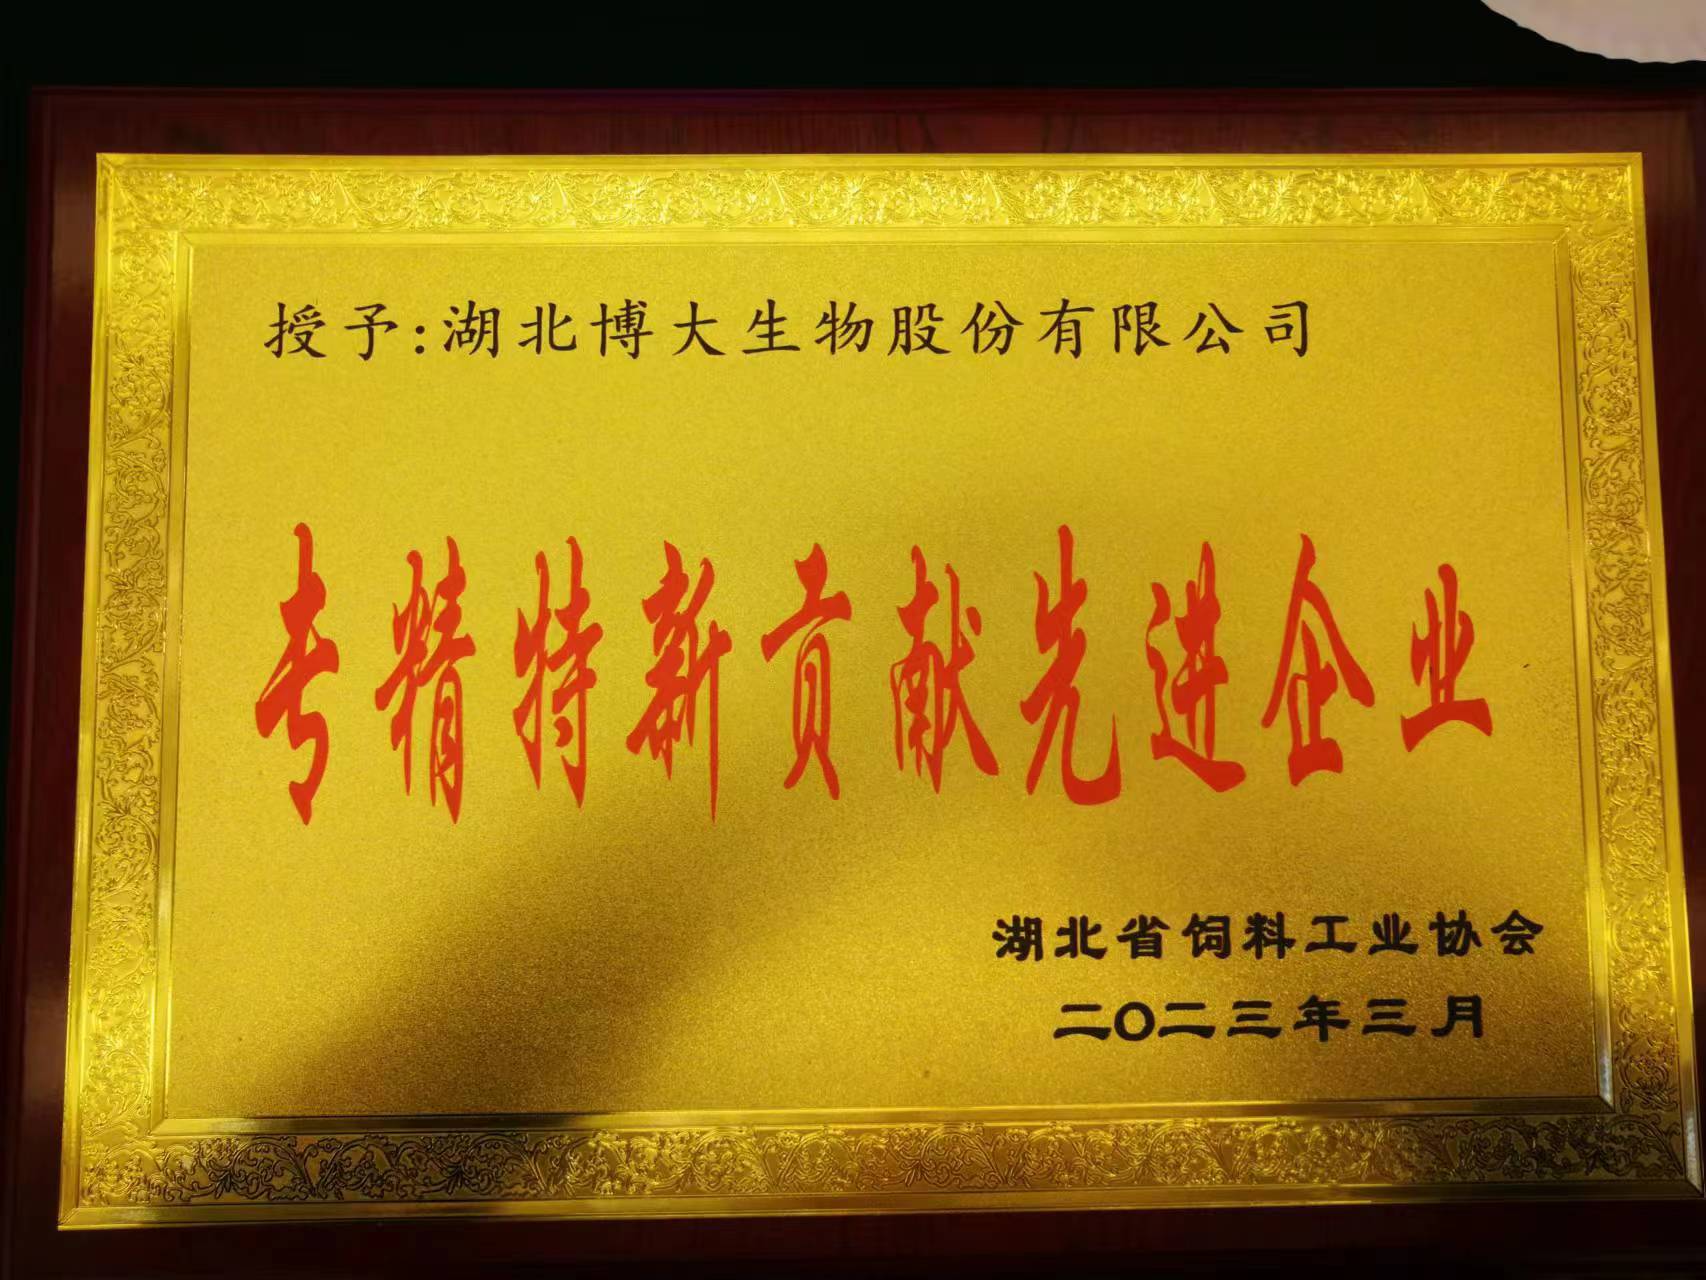 授予:湖北博大生物股份有限公司
专精特新贡献先进企业
湖北省饲料工业协会
二〇二三年三月